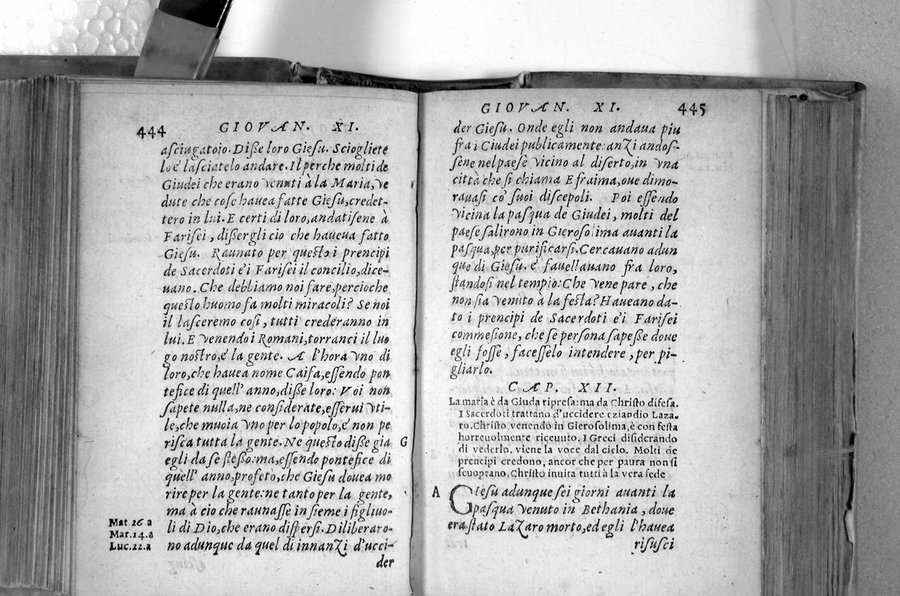 444 GIOVAN. XI.
asciugatoio. Disse loro Giesu. Sciogliete
lo è lasciatelo andare. Il perche molti de
Giudei che erano venuti à la Maria, ve
dute che cose hauea fatte Giesu, credet-
tero in lui. E certi di loro, andatisene à
Farisei, dissergli cio che haueua fatto
Giesu. Raunato per questo i prencipi
de Sacerdoti è i Farisei il concilio, dice-
uano. Che debbiamo noi fare, percioche
questo huomo fa molti miracoli? Se noi
il lasceremo cosi, tutti crederanno in
lui. E venendo i Romani, torranci il luo
go nostro, è la gente. A l'hora vno di
loro, che hauea nome Caifa, essendo pon
tefice di quell' anno, disse loro: Voi non
sapete nulla, ne considerate, esserui vti-
le, che muoia vno per lo popolo, è non pe
risca tutta la gente. Ne questo disse gia G
egli da se stesso: ma, essendo pontefice di
quell' anno, profetò, che Giesu douea mo
rire per la gente: ne tanto per la gente,
ma à cio che raunasse in sieme i figliuo-
li di Dio, che erano dispersi. Diliberaro-
no adunque da quel di innanzi d'ucci-
der
Mat. 26.a
Mar. 14.a
Luc. 22.a
GIOVAN. XI. 445
der Giesu. Onde egli non andaua piu
fra i Giudei publicamente: anzi andos-
sene nel paese vicino al diserto, in vna
città che si chiama Efraima, oue dimo-
rauasi co' suoi discepoli. Poi essendo
vicina la pasqua de Giudei, molti del
paese salirono in Gierosolima auanti la
pasqua, per purificarsi. Cercauano adun
que di Giesu. è fauellauano fra loro,
standosi nel tempio: Che vene pare, che
non sia venuto à la festa? Haueano da-
to i prencipi de Sacerdoti è i Farisei
commesione, che se persona sapesse doue
egli fosse, facesselo intendere, per pi-
gliarlo.
CAP. XII.
La maria è da Giuda ripresa: ma da Christo difesa.
I Sacerdoti trattano d'uccidere eziandio Laza-
ro. Christo venendo in Gierosolima, è con festa
horreuolmente riceuuto. I Greci disiderando
di vederlo. viene la voce dal cielo. Molti de
prencipi credono, ancor che per paura non si
scuoprano. Christo inuita tutti à la vera fede
A Giesu adunque sei giorni auanti la
pasqua venuto in Bethania, doue
era stato Lazaro morto, ed egli l'hauea
risusci